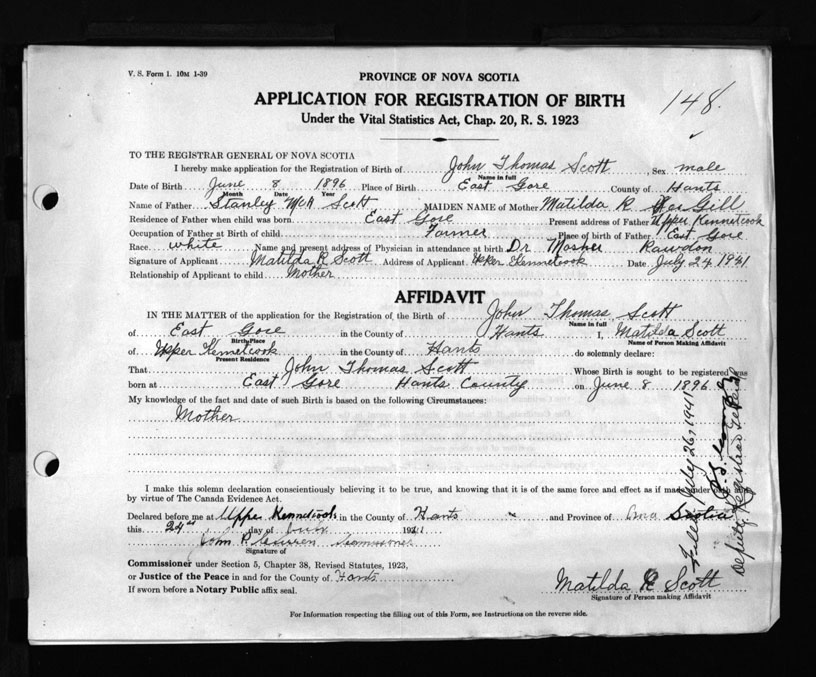 V. S. Form 1. 10M 1-39
PROVINCE OF NOVA SCOTIA
APPLICATION FOR REGISTRATION OF BIRTH
148.
Under the Vital Statistics Act, Chap. 20, R. S. 1923
TO THE REGISTRAR GENERAL OF NOVA SCOTIA
I hereby make application for the Registration of Birth of John Thomas Scott Sex male
Name in full
Date of Birth June 8 1896 Place of Birth East Gore County of Hants
Month Date Year
Name of Father Stanley McA Scott MAIDEN NAME of Mother Matilda R Gill
Residence of Father when child was born East Gore Present address of Father Upper Kennetcook
Occupation of Father at Birth of child Farmer Place of birth of Father East Gore
Race white Name and present address of Physician in attendance at birth Dr Mosher Rawdon
Signature of Applicant Matilda R Scott Address of Applicant Upper Kennetcook Date July 24 1941
Relationship of Applicant to child Mother
AFFIDAVIT
IN THE MATTER of the application for the Registration, of the Birth of John Thomas Scott
Name in full
of East Gore in the County of Hants I, Matilda Scott
Birth Place Name of Person Making Affidavit
of Upper Kennetcook in the County of Hants do solemnly declare:
Present Residence
That John Thomas Scott Whose Birth is sought to be registered was
born at East Gore Hants County on June 8 1896
My knowledge of the fact and date of such Birth is based on the following Circumstances:
Mother
I make this solemn declaration conscientiously believing it to be true, and knowing that it is of the same force and effect as if made under oath and
by virtue of The Canada Evidence Act.
Declared before me at Upper Kennetcook in the County of Hants and Province of Nova Scotia
this 24th day of July 1941
John Commissioner
Signature of
Commissioner under Section 5, Chapter 38, Revised Statutes, 1923,
or Justice of the Peace in and for the County of Hants
If sworn before a Notary Public affix seal.
Matilda R Scott
Signature of Person making Affidavit
For Information respecting the filling out of this Form, see Instructions on the reverse side.
Filed July 26, 1941
Deputy Registrar General